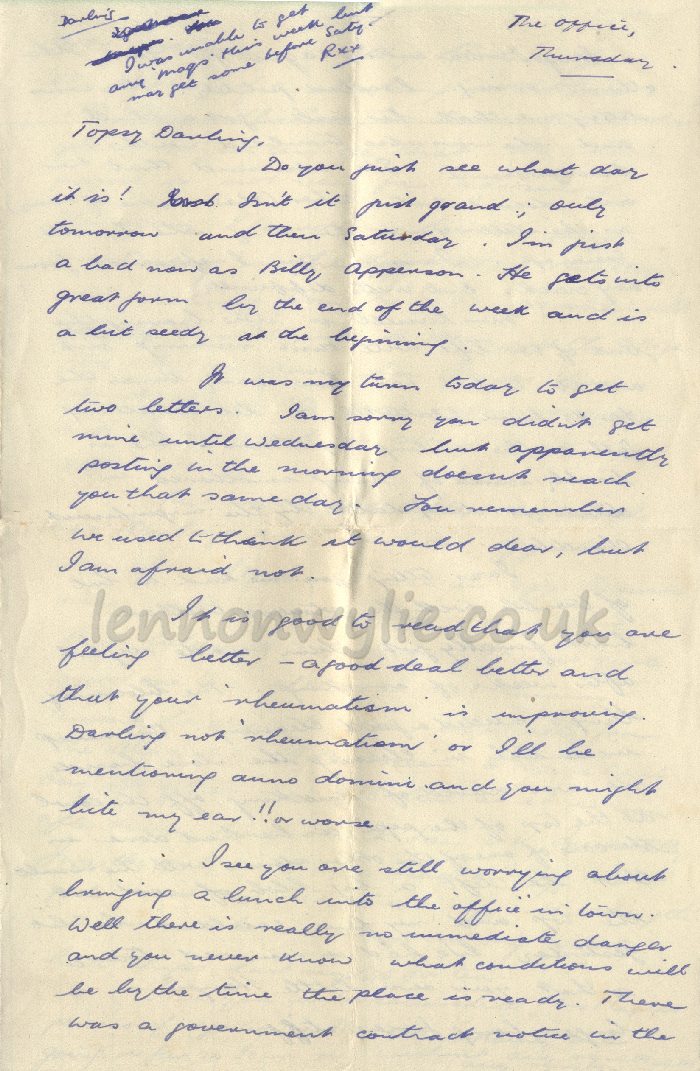 Darling
I was unable to get
any mags this week but
may get some before Saty
Rxx
The Office,
Thursday.
Topsy Darling,
Do you just see what day
it is! Isn't it just grand; only
tomorrow and then Saturday. I'm just
a bad now as Billy Apperson. He gets into
great form by the end of the week and is
a bit seedy at the beginning.
It was my turn today to get
two letters. I am sorry you didn't get
mine until Wednesday but apparently
posting in the morning doesnt reach
you that same day. You remember
we used to think it would dear, but
I am afraid not.
lennonwylie.co.uk
It is good to read that you are
feeling better – a good deal better and
that your 'rheumatism' is improving.
Darling not 'rheumatism' or I'll be
mentioning anno domini and you might
bite my ear!! or worse.
I see you are still worrying about
bringing a lunch into the office in town.
Well there is really no immediate danger
and you never know what conditions will
be by the time the place is ready. There
was a government contract notice in the